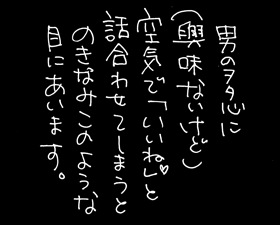 男のヲタ心に
(興味ないけど)
空気で「いいね♡」と
話合わせてしまうと
のきなみこのような
目にあいます。